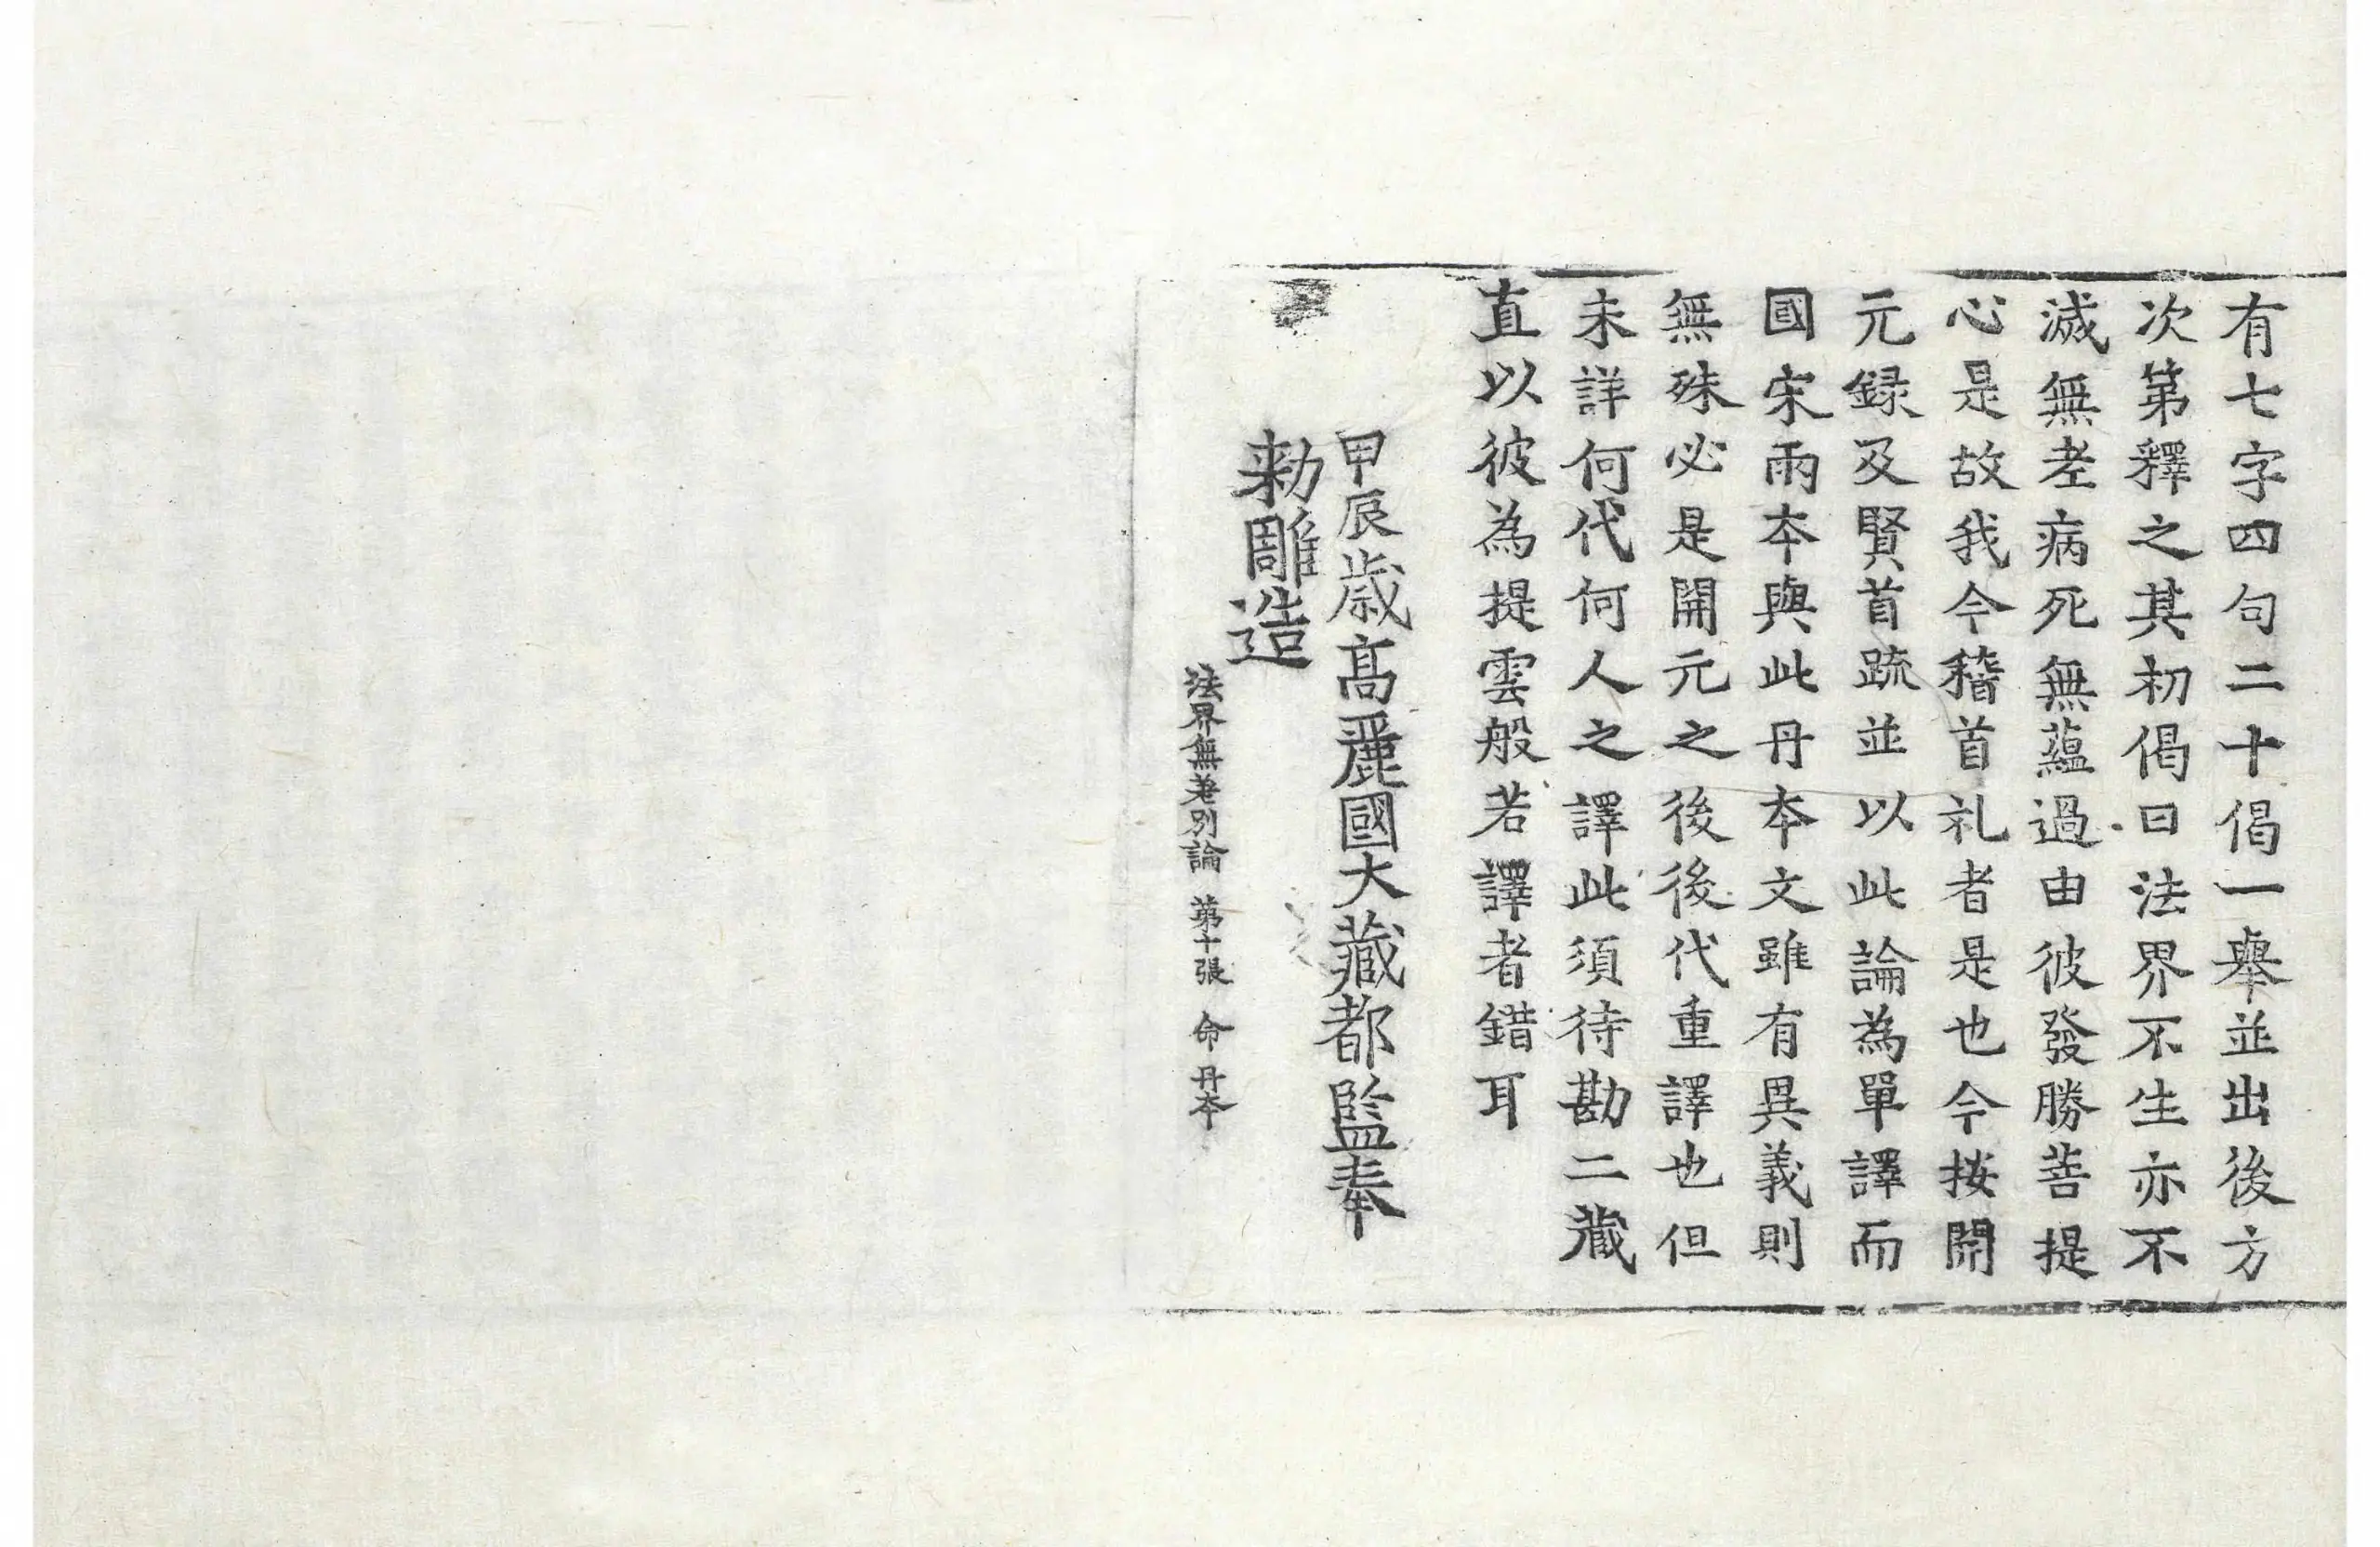 有七字四句二十偈一舉並出後方
次第釋之其初偈曰法界不生亦不
滅無老病死無蘊過由彼發勝菩提
心是故我今稽首礼者是也今按開
元録及賢首䟽並以此論為單譯而
國宋兩夲與此丹夲文雖有異義則
無殊必是開元之後後代重譯也但
未詳何代何人之譯此須待勘二藏
直以彼為提雲般若譯者錯耳
甲辰歲高麗國大藏都監奉
勑雕造
法界無差別論 第十張 命 丹夲